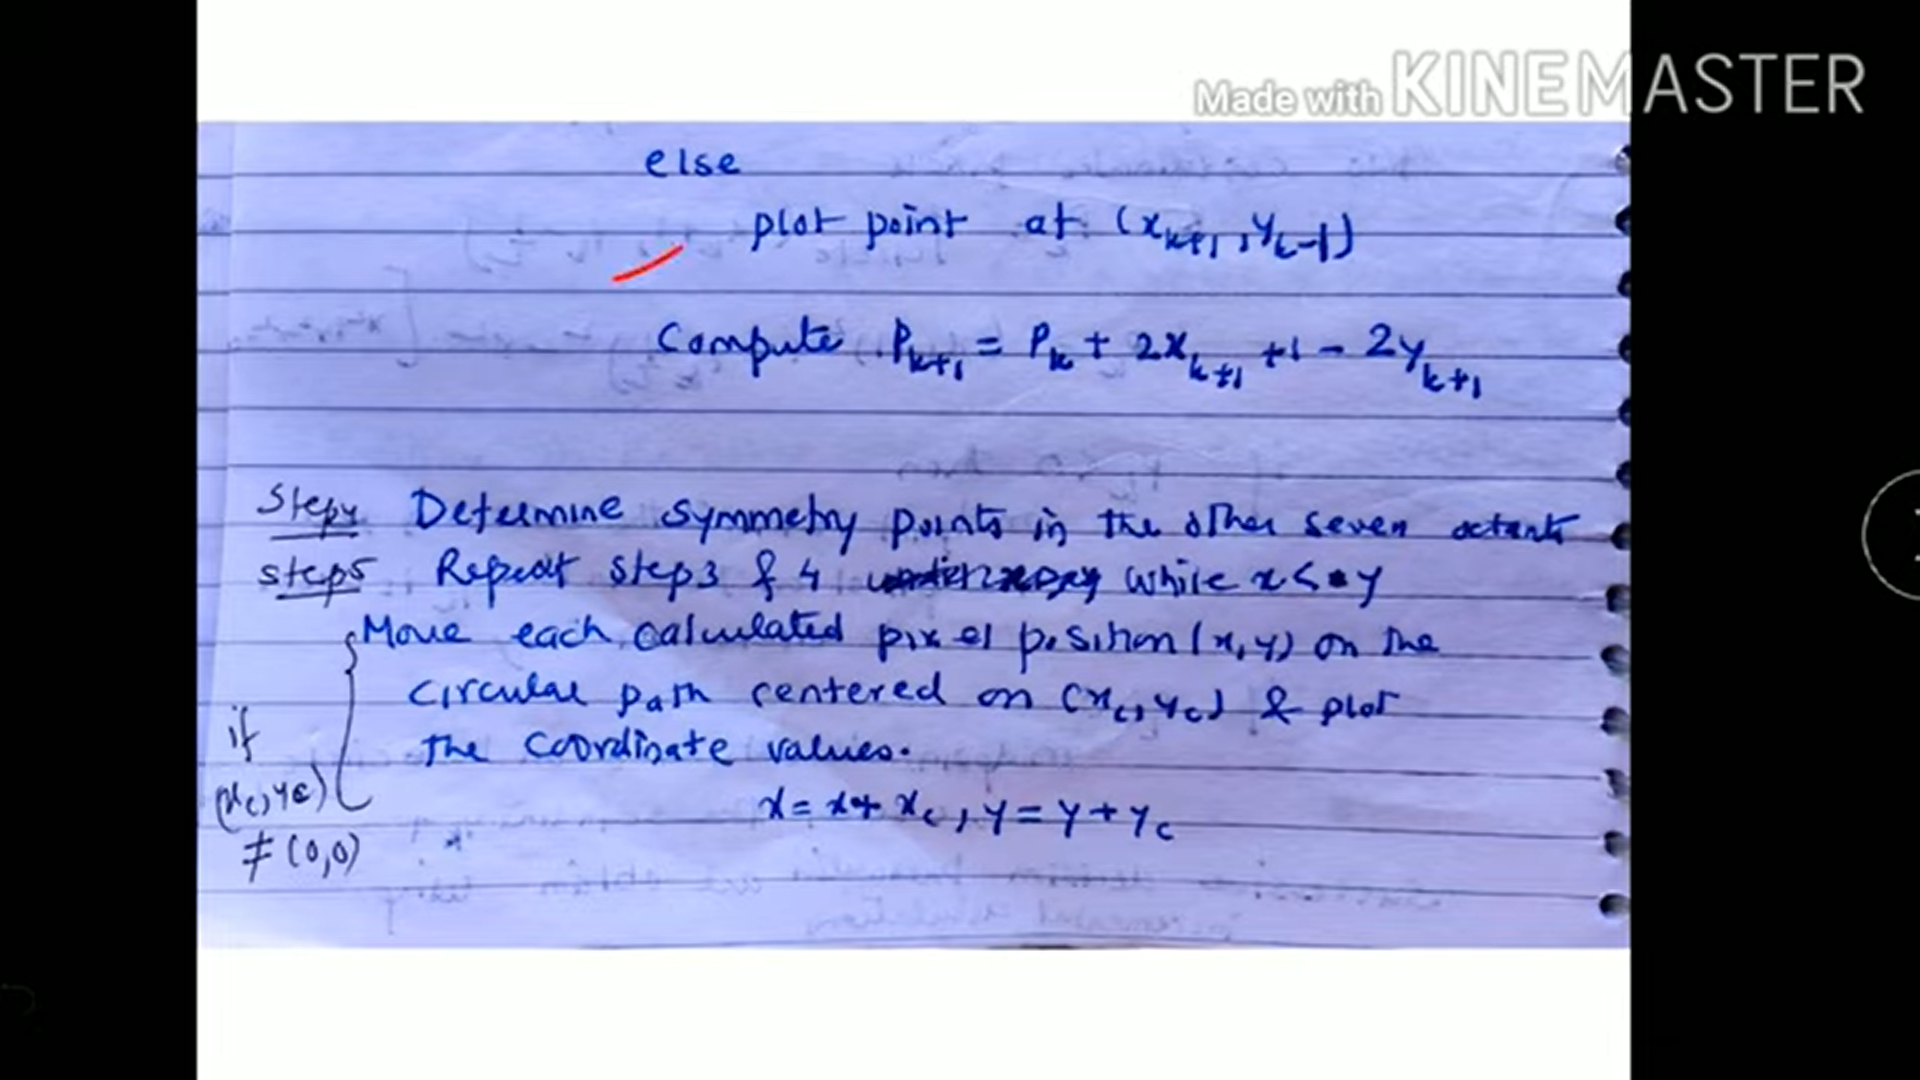 Made with KINEMASTER
else
plot point at (xk+1, yk-1)
Compute Pk+1 = Pk + 2xk+1 +1 - 2yk+1
Step4 Determine symmetry points in the other seven octants
Step5 Repeat step3 & 4 while x < y
Move each calculated pixel position (x,y) on the
circular path centered on (xc, yc) & plot
the coordinate values.
x = x + xc, y = y + yc
if
(xc, yc)
≠ (0,0)